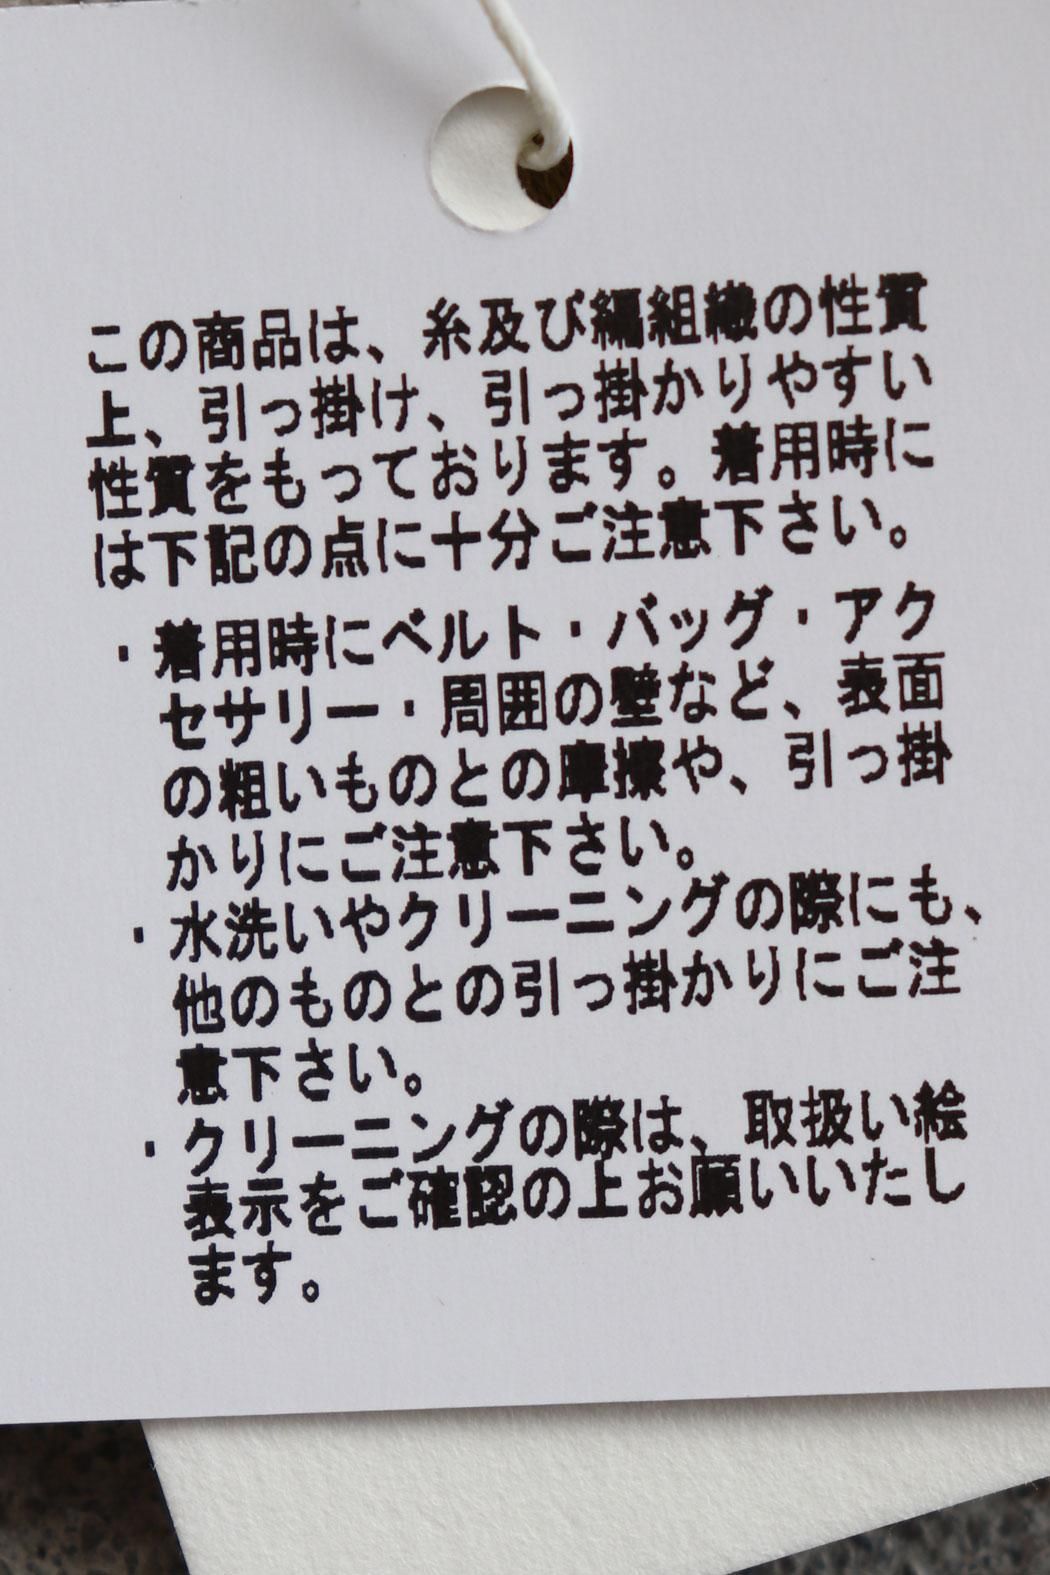 この商品は、糸及び編組織の性質
上、引っ掛け、引っ掛かりやすい
性質をもっております。着用時に
は下記の点に十分ご注意下さい。
・着用時にベルト・バッグ・アク
セサリー・周囲の壁など、表面
の粗いものとの摩擦や、引っ掛
かりにご注意下さい。
・水洗いやクリーニングの際にも、
他のものとの引っ掛かりにご注
意下さい。
・クリーニングの際は、取扱い絵
表示をご確認の上お願いいたし
ます。